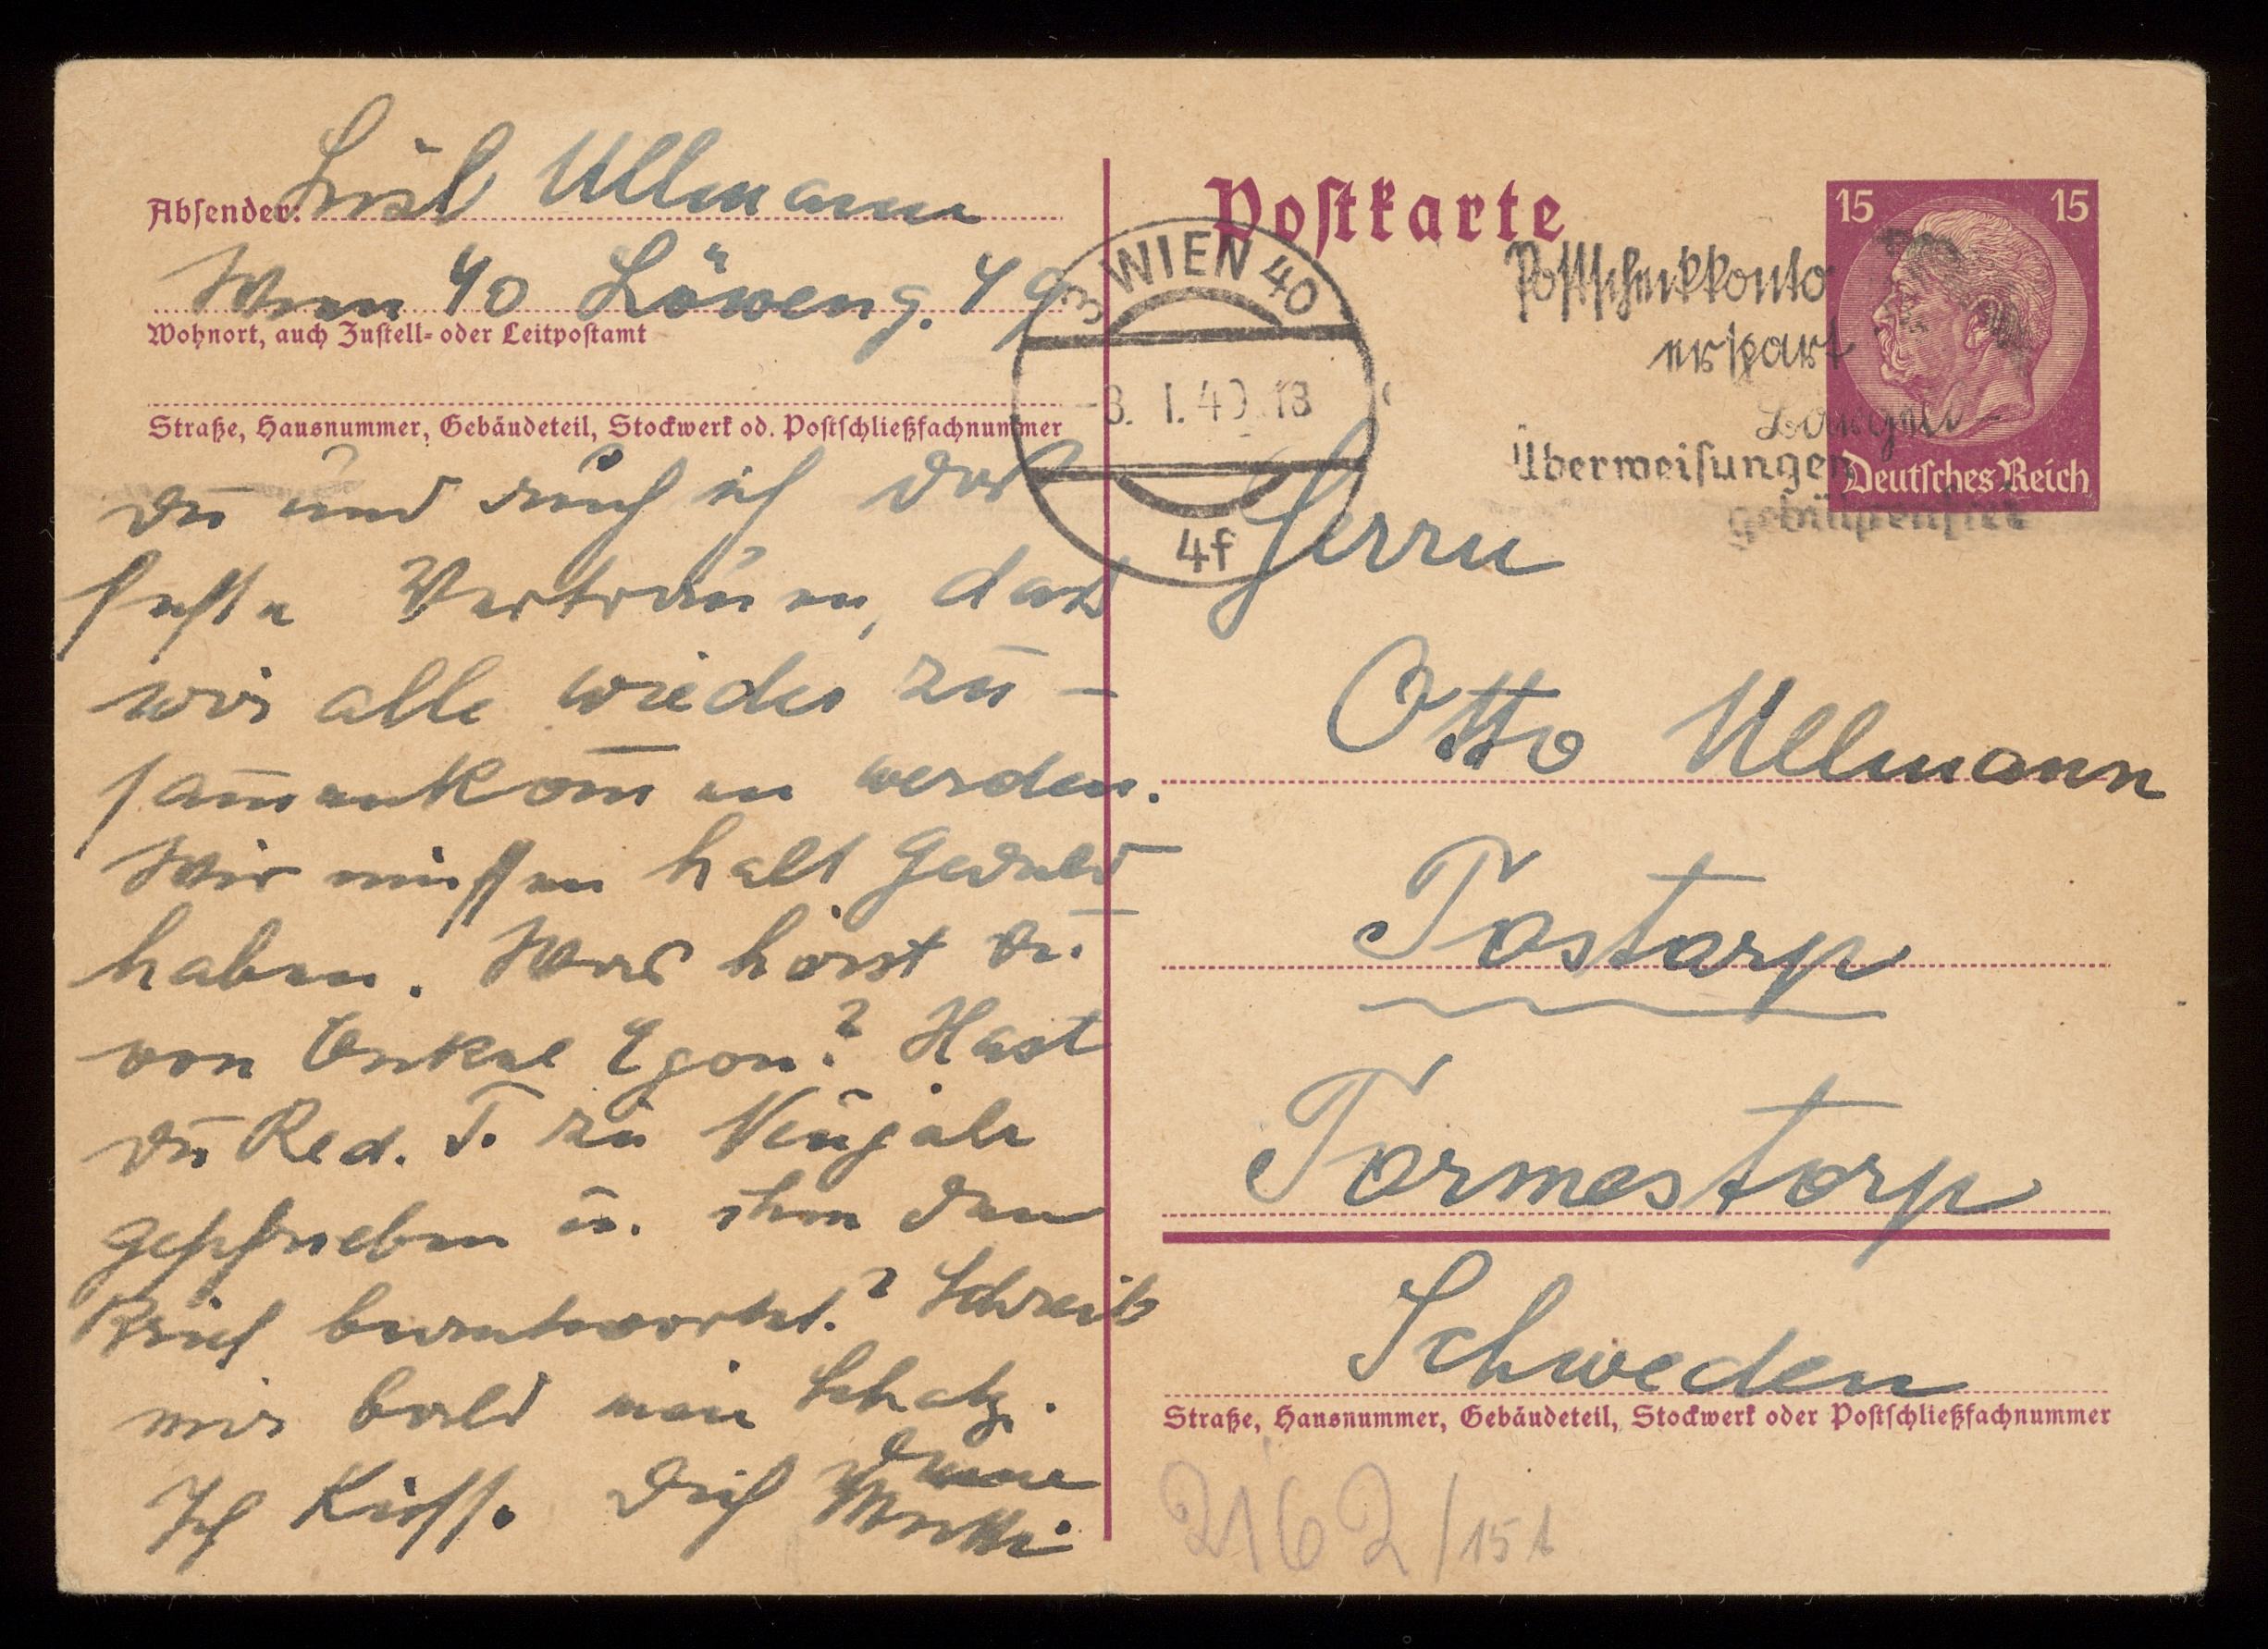 Absender: Lisl Ullmann
Wien 40 Löweng. 49
Wohnort, auch Zustell- oder Leitpostamt
Straße, Hausnummer, Gebäudeteil, Stockwerk od. Postschließfachnummer
du und auch ich das
feste Vertrauen, dass
wir alle wieder zu-
sam̅enkom̅en werden.
Wir müssen halt Geduld
haben. Was hörst du
von Onkel Egon? Hast
du Red. T. zu Neujahr
geschrieben u. ihm den
Brief beantwortet? Schreib
mir bald mein Schatz.
Ich küsse dich deine
Mutti
Postkarte
3 WIEN 40
-3. I. 40. 18
4f
Postscheckkonto
erspart
Überweisungen
gebührenfrei
15 15
Deutsches Reich
Herrn
Otto Ullmann
Tostarp
Tormestorp
Schweden
Straße, Hausnummer, Gebäudeteil, Stockwerk oder Postschließfachnummer
2162/151